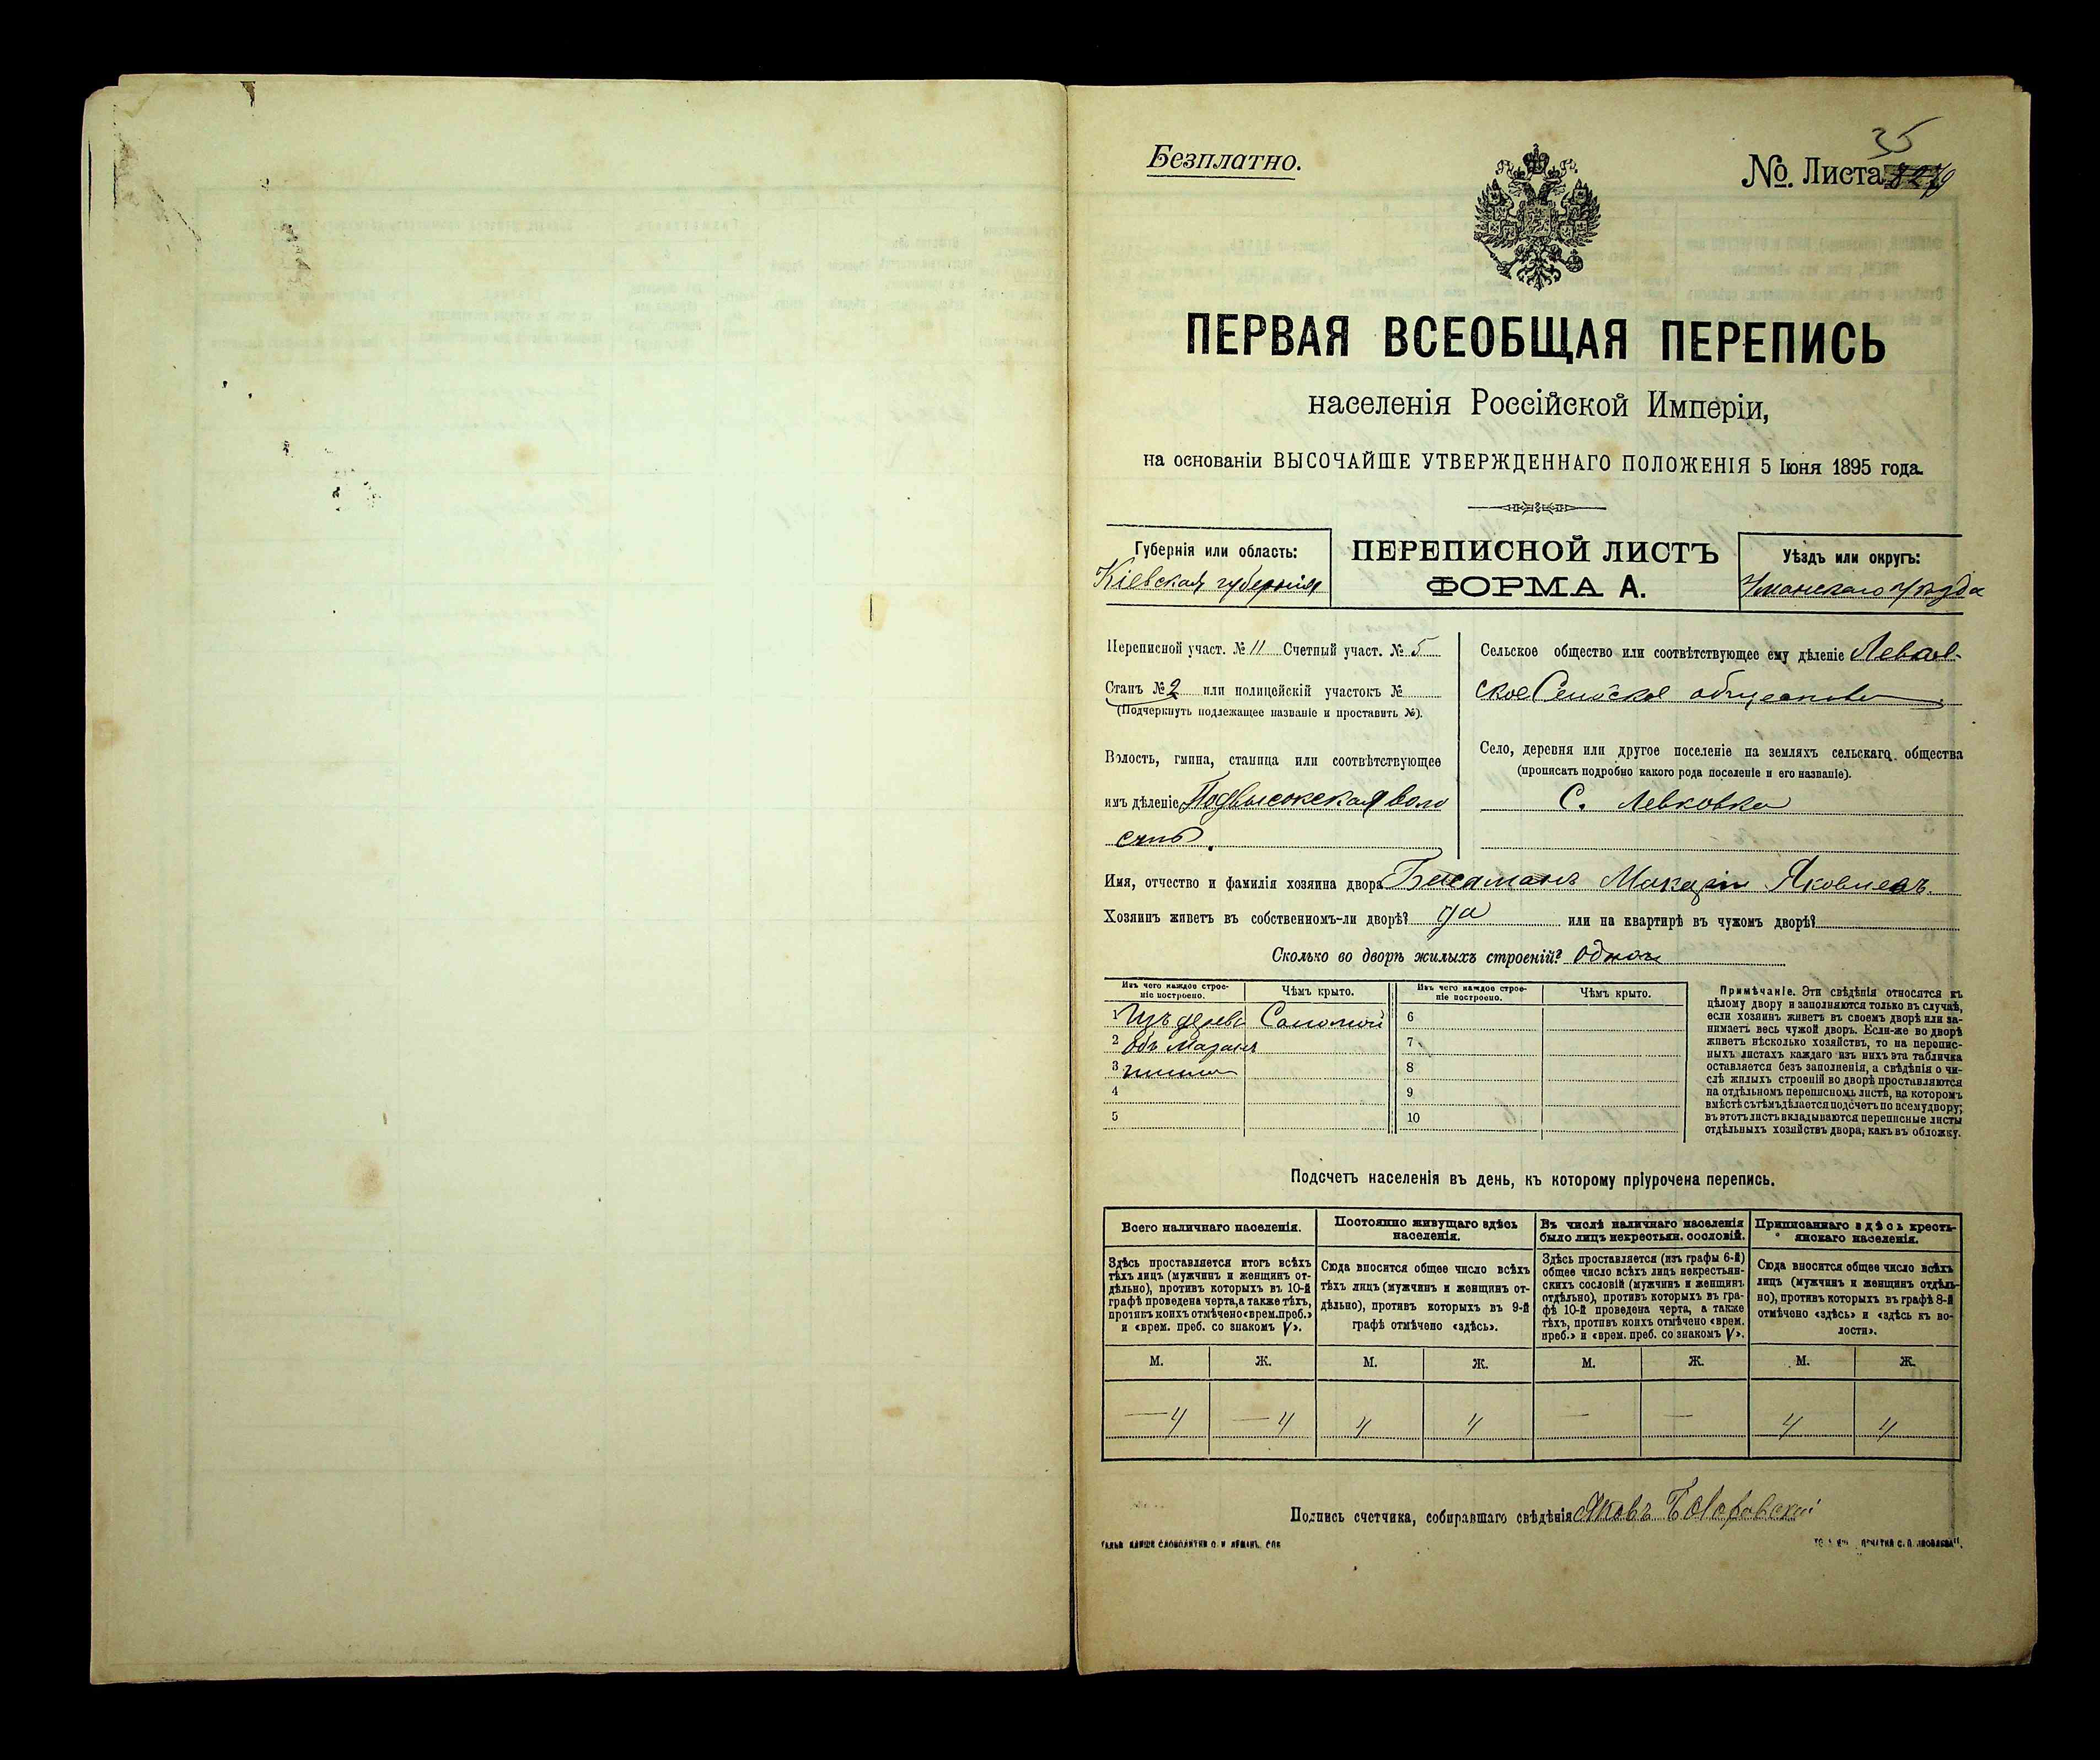 Безплатно.
35
No. Листа
ПЕРВАЯ ВСЕОБЩАЯ ПЕРЕПИСЬ
населенія Россійской Имперіи,
на основаніи ВЫСОЧАЙШЕ УТВЕРЖДЕННАГО ПОЛОЖЕНІЯ 5 Іюня 1895 года.
Губернія или область:
Кіевская губернія
ПЕРЕПИСНОЙ ЛИСТЪ
ФОРМА А.
Уѣздъ или округъ:
Уманскаго уѣзда
Переписной участ. № 11 Счетный участ. № 5
Станъ № 2 или полицейскій участокъ №
(Подчеркнуть подлежащее названіе и проставить №).
Волость, гмина, станица или соотвѣтствующее
имъ дѣленіе Подвысокская воло
сть.
Сельское общество или соотвѣтствующее ему дѣленіе Левков-
ское Сельское общество
Село, деревня или другое поселеніе на земляхъ сельскаго общества
(прописать подробно какого рода поселеніе и его названіе).
С. Левковка
Имя, отчество и фамилія хозяина двора Макарій Яковлевъ.
Хозяинъ живетъ въ собственномъ-ли дворѣ? да или на квартирѣ въ чужомъ дворѣ?
Сколько во дворѣ жилыхъ строеній? одно
Изъ чего каждое строе-
ніе построено.
Чѣмъ крыто.
Изъ чего каждое строе-
ніе построено.
Чѣмъ крыто.
1 Изъ дерева Соломой 6
2 7
3 8
4 9
5 10
Примѣчаніе. Эти свѣдѣнія относятся къ
цѣлому двору и заполняются только въ случаѣ,
если хозяинъ живетъ въ своемъ дворѣ или за-
нимаетъ весь чужой дворъ. Если-же во дворѣ
живетъ нѣсколько хозяйствъ, то на перепис-
ныхъ листахъ каждаго изъ нихъ эта табличка
оставляется безъ заполненія, а свѣдѣнія о чи-
слѣ жилыхъ строеній во дворѣ проставляются
на отдѣльномъ переписномъ листѣ, на которомъ
вмѣстѣ съ тѣмъ дѣлается подсчетъ по всему двору;
въ этотъ листъ вкладываются переписные листы
отдѣльныхъ хозяйствъ двора, какъ въ обложку.
Подсчетъ населенія въ день, къ которому пріурочена перепись.
Всего наличнаго населенія.
Здѣсь проставляется итогъ всѣхъ
тѣхъ лицъ (мужчинъ и женщинъ от-
дѣльно), противъ которыхъ въ 10-й
графѣ проведена черта, а также тѣхъ,
противъ коихъ отмѣчено «врем. преб.»
и «врем. преб. со знакомъ V».
Постоянно живущаго здѣсь
населенія.
Сюда вносится общее число всѣхъ
тѣхъ лицъ (мужчинъ и женщинъ от-
дѣльно), противъ которыхъ въ 9-й
графѣ отмѣчено «здѣсь».
Въ числѣ наличнаго населенія
было лицъ некрестьян. сословій.
Здѣсь проставляется (изъ графы 6-й)
общее число всѣхъ лицъ некрестьян-
скихъ сословій (мужчинъ и женщинъ
отдѣльно), противъ которыхъ въ гра-
фѣ 10-й проведена черта, а также
тѣхъ, противъ коихъ отмѣчено «врем.
преб.» и «врем. преб. со знакомъ V».
Приписаннаго здѣсь кресть-
янскаго населенія.
Сюда вносится общее число всѣхъ
лицъ (мужчинъ и женщинъ отдѣль-
но), противъ которыхъ въ графѣ 8-й
отмѣчено «здѣсь» и «здѣсь къ во-
лости».
М. Ж. М. Ж. М. Ж. М. Ж.
— 4 — 4 4 4 — — 4 4
Подпись счетчика, собиравшаго свѣдѣнія Яковъ